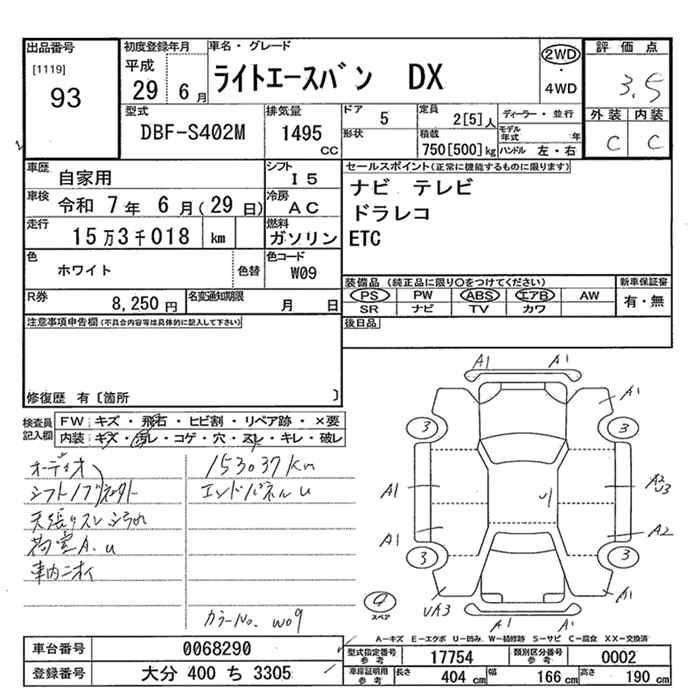 出品番号
[1119]
93
初度登録年月
平成
29 6月
車名・グレード
ライトエースバン DX
2WD
・
4WD
評価点
3.5
外装 内装
C C
型式
DBF-S402M
排気量
1495 cc
ドア 5
形状
定員 2[5]人
積載 750[500]kg
ディーラー・並行
モデル年式 年
ハンドル 左・右
車歴 自家用
シフト I5
車検 令和 7年 6月(29日)
冷房 AC
走行 15万3千018 km
燃料 ガソリン
色 ホワイト 色替
色コード W09
R券 8,250円
名変通知期限 月 日
セールスポイント(正常に機能するものに限ります)
ナビ テレビ
ドラレコ
ETC
装備品(純正品に限り〇をつけてください)
PS PW ABS エアB AW
SR ナビ TV カワ
新車保証書
有・無
後日品
注意事項申告欄(不具合内容等は具体的に記入して下さい)
修復歴 有〔箇所 〕
検査員記入欄
FW キズ・飛石・ヒビ割・リペア跡・×要
内装 キズ・汚レ・コゲ・穴・スレ・キレ・破レ
オーディオ
153037km
シフトノブ
エンドパネルU
天張りスレ
荷室A.U
車内ニオイ
カラーNo. W09
A1 A1
A1
3 3
A1 A2
A1 A2
3 3
UA3 A1
A1 A1
スペア
A-キズ E-エクボ U-凹み W-補修跡 S-サビ C-腐食 XX-交換済
車台番号 0068290
登録番号 大分 400 ち 3305
型式指定番号 参考 17754
類別区分番号 参考 0002
車庫証明用 参考 長さ 404cm 幅 166cm 高さ 190cm